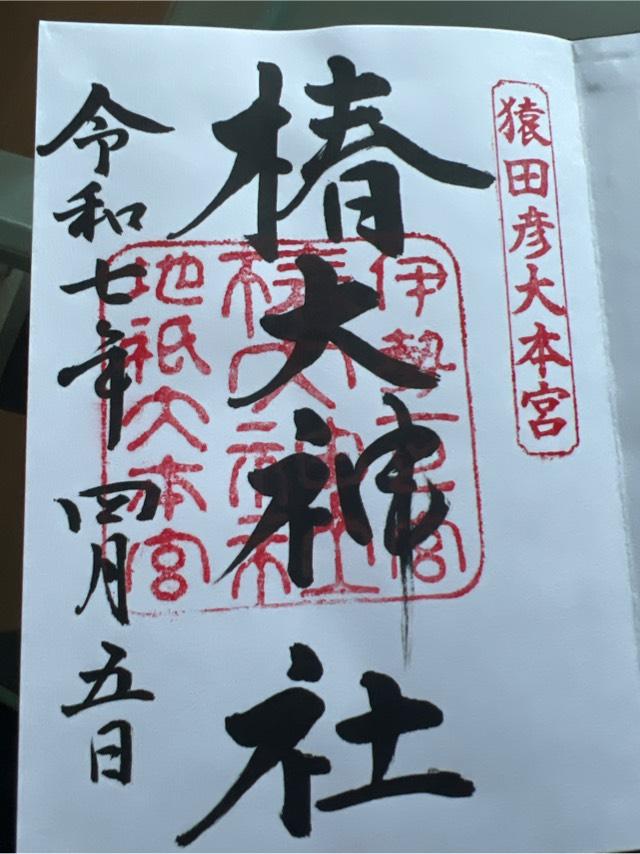 猿田彦大本宮
椿大神社
伊勢一之宮
椿大神社
地祇大本宮
令和七年四月五日